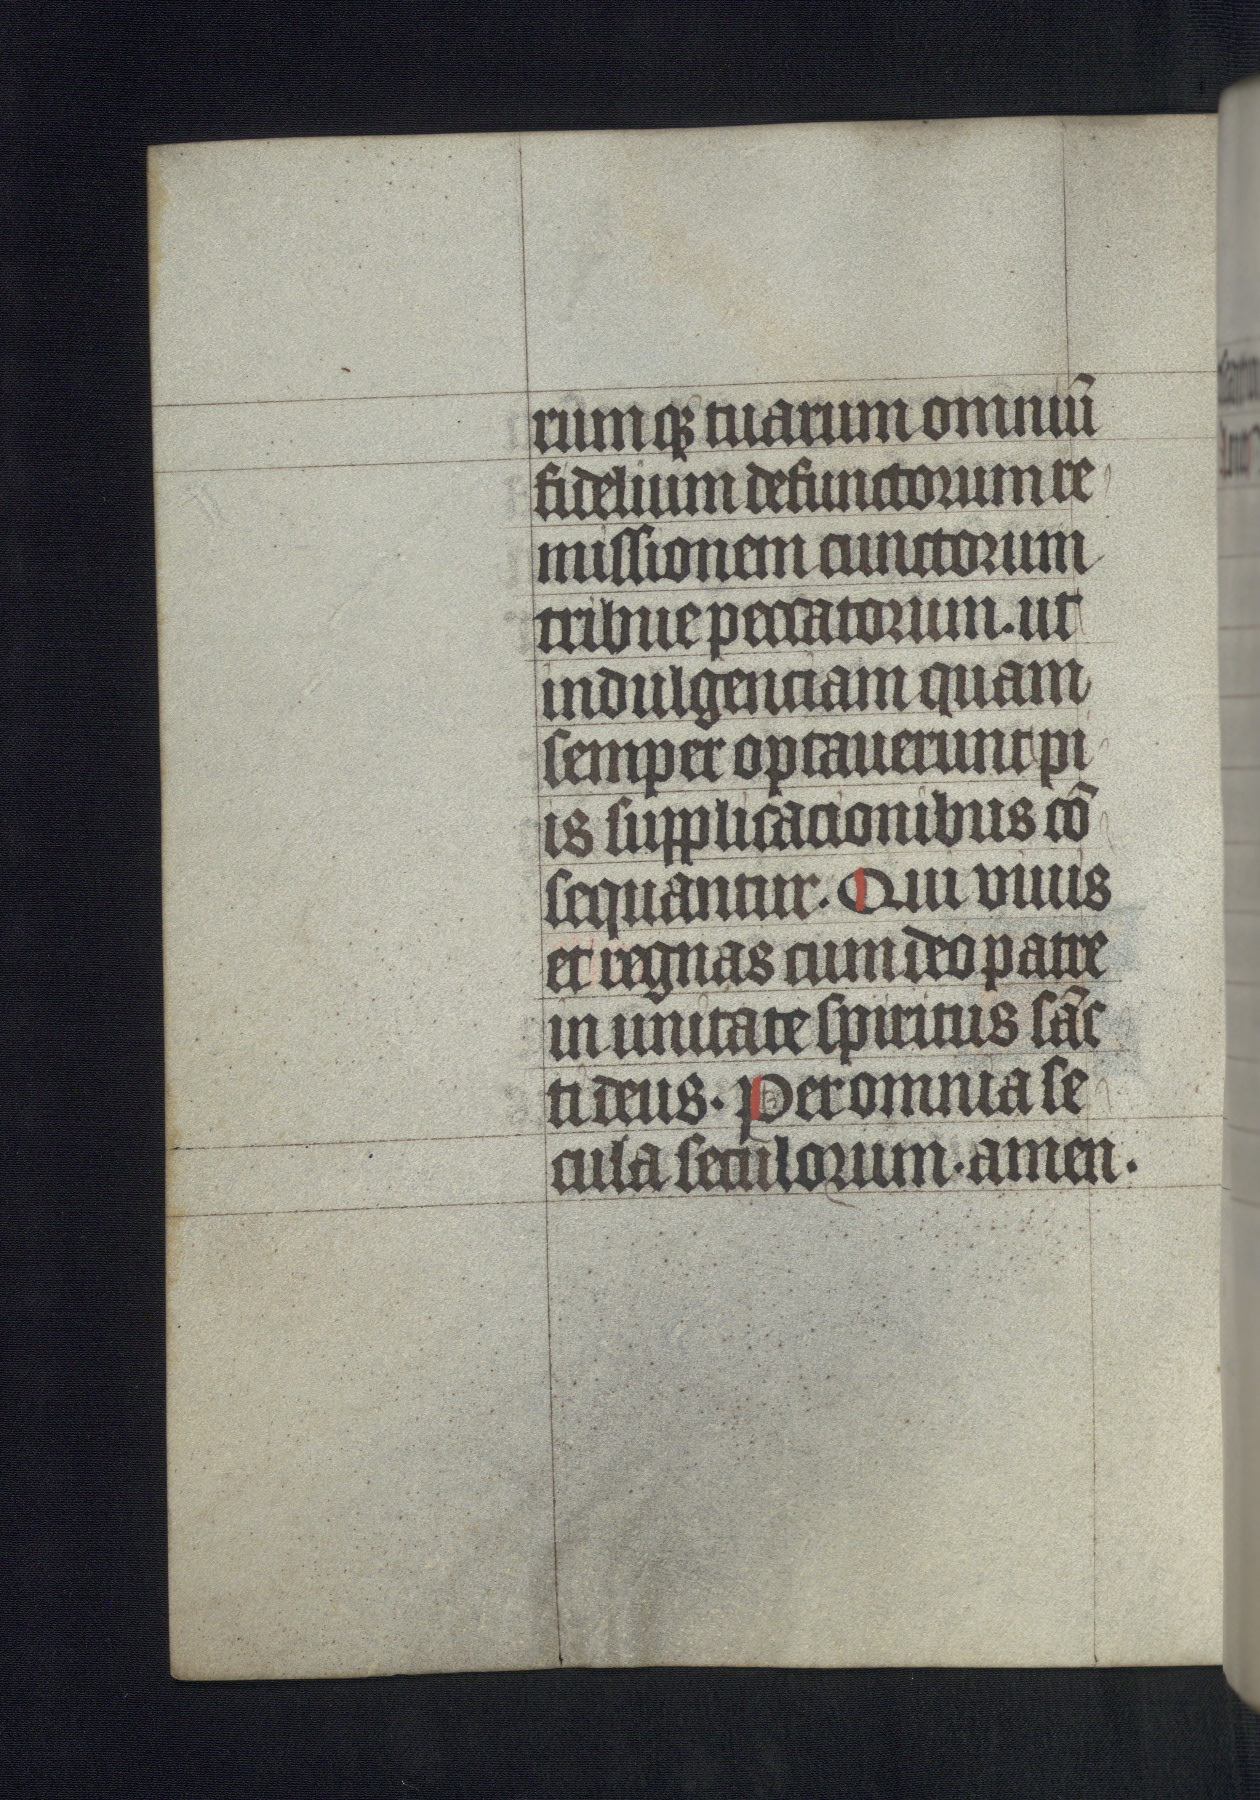 rumqꝫ tuarum omniū
fidelium defunctorum re
missionem cunctorum
tribue peccatorum. ut
indulgenciam quam
semper optauerunt pi
is supplicacionibus cō
sequantur. Qui viuis
et regnas cum deo patre
in unitate spiritus sāc
ti deus. Per omnia se
cula seculorum. amen.